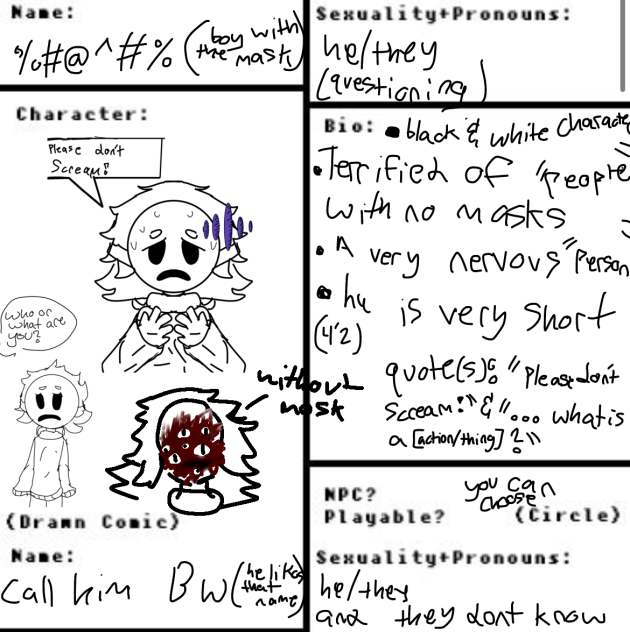 Name:
%#@^#% (boy with the mask)
Character:
Please don't
Scream!
who or
what are
you?
without
mask
(Drawn Comic)
Name:
call him BW (he likes that name)
Sexuality+Pronouns:
he/they
(questioning)
Bio: • black & white Characte
• Terrified of "People
with no masks"
• A very nervous Person
• he is very short
(4'2)
quote(s): "Please don't
Scream!" & "... what is
a [action/thing]?"
NPC?
Playable?
you can
choose
(Circle)
Sexuality+Pronouns:
he/they
and they dont know